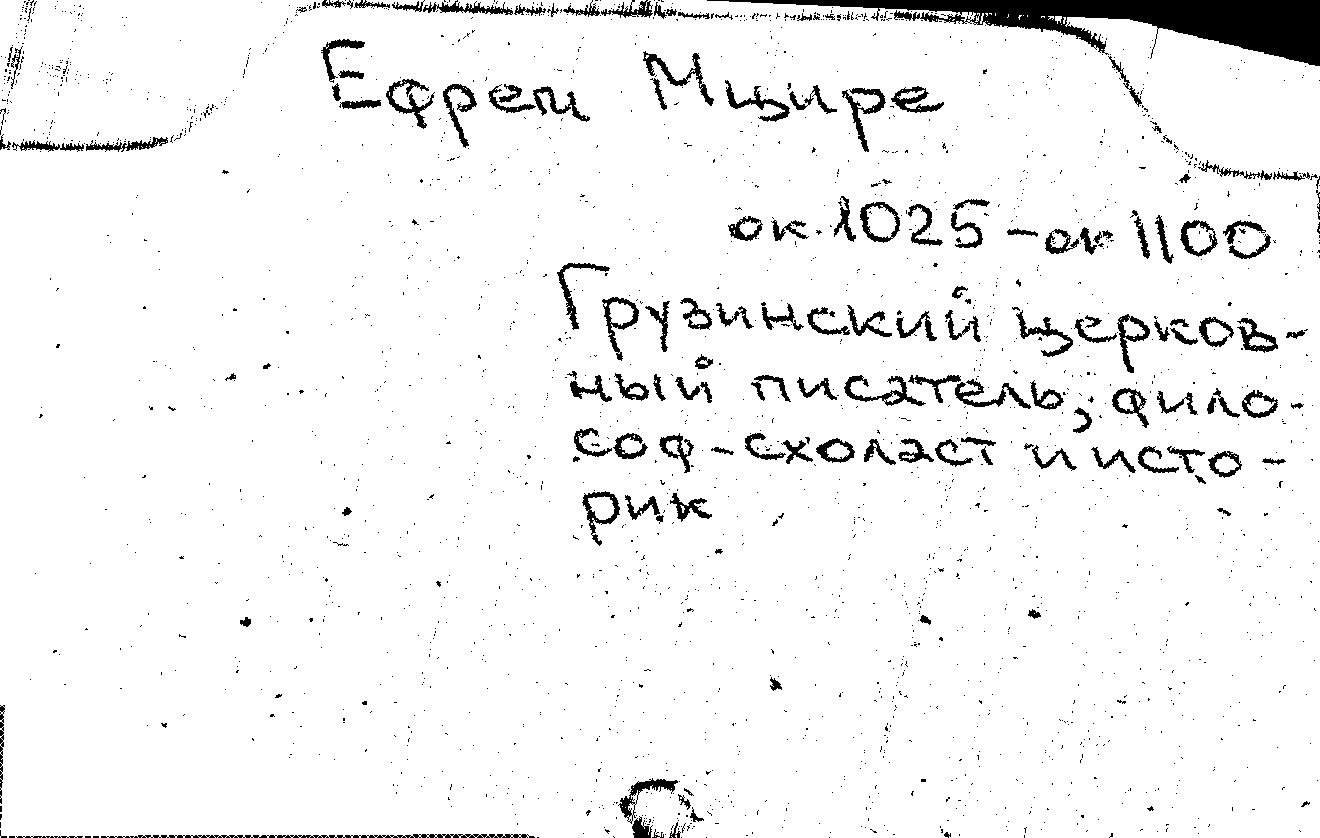 Ефрем Мцире
ок. 1025 - ок 1100
Грузинский церков-
ный писатель, фило-
соф-схоласт и исто-
рик